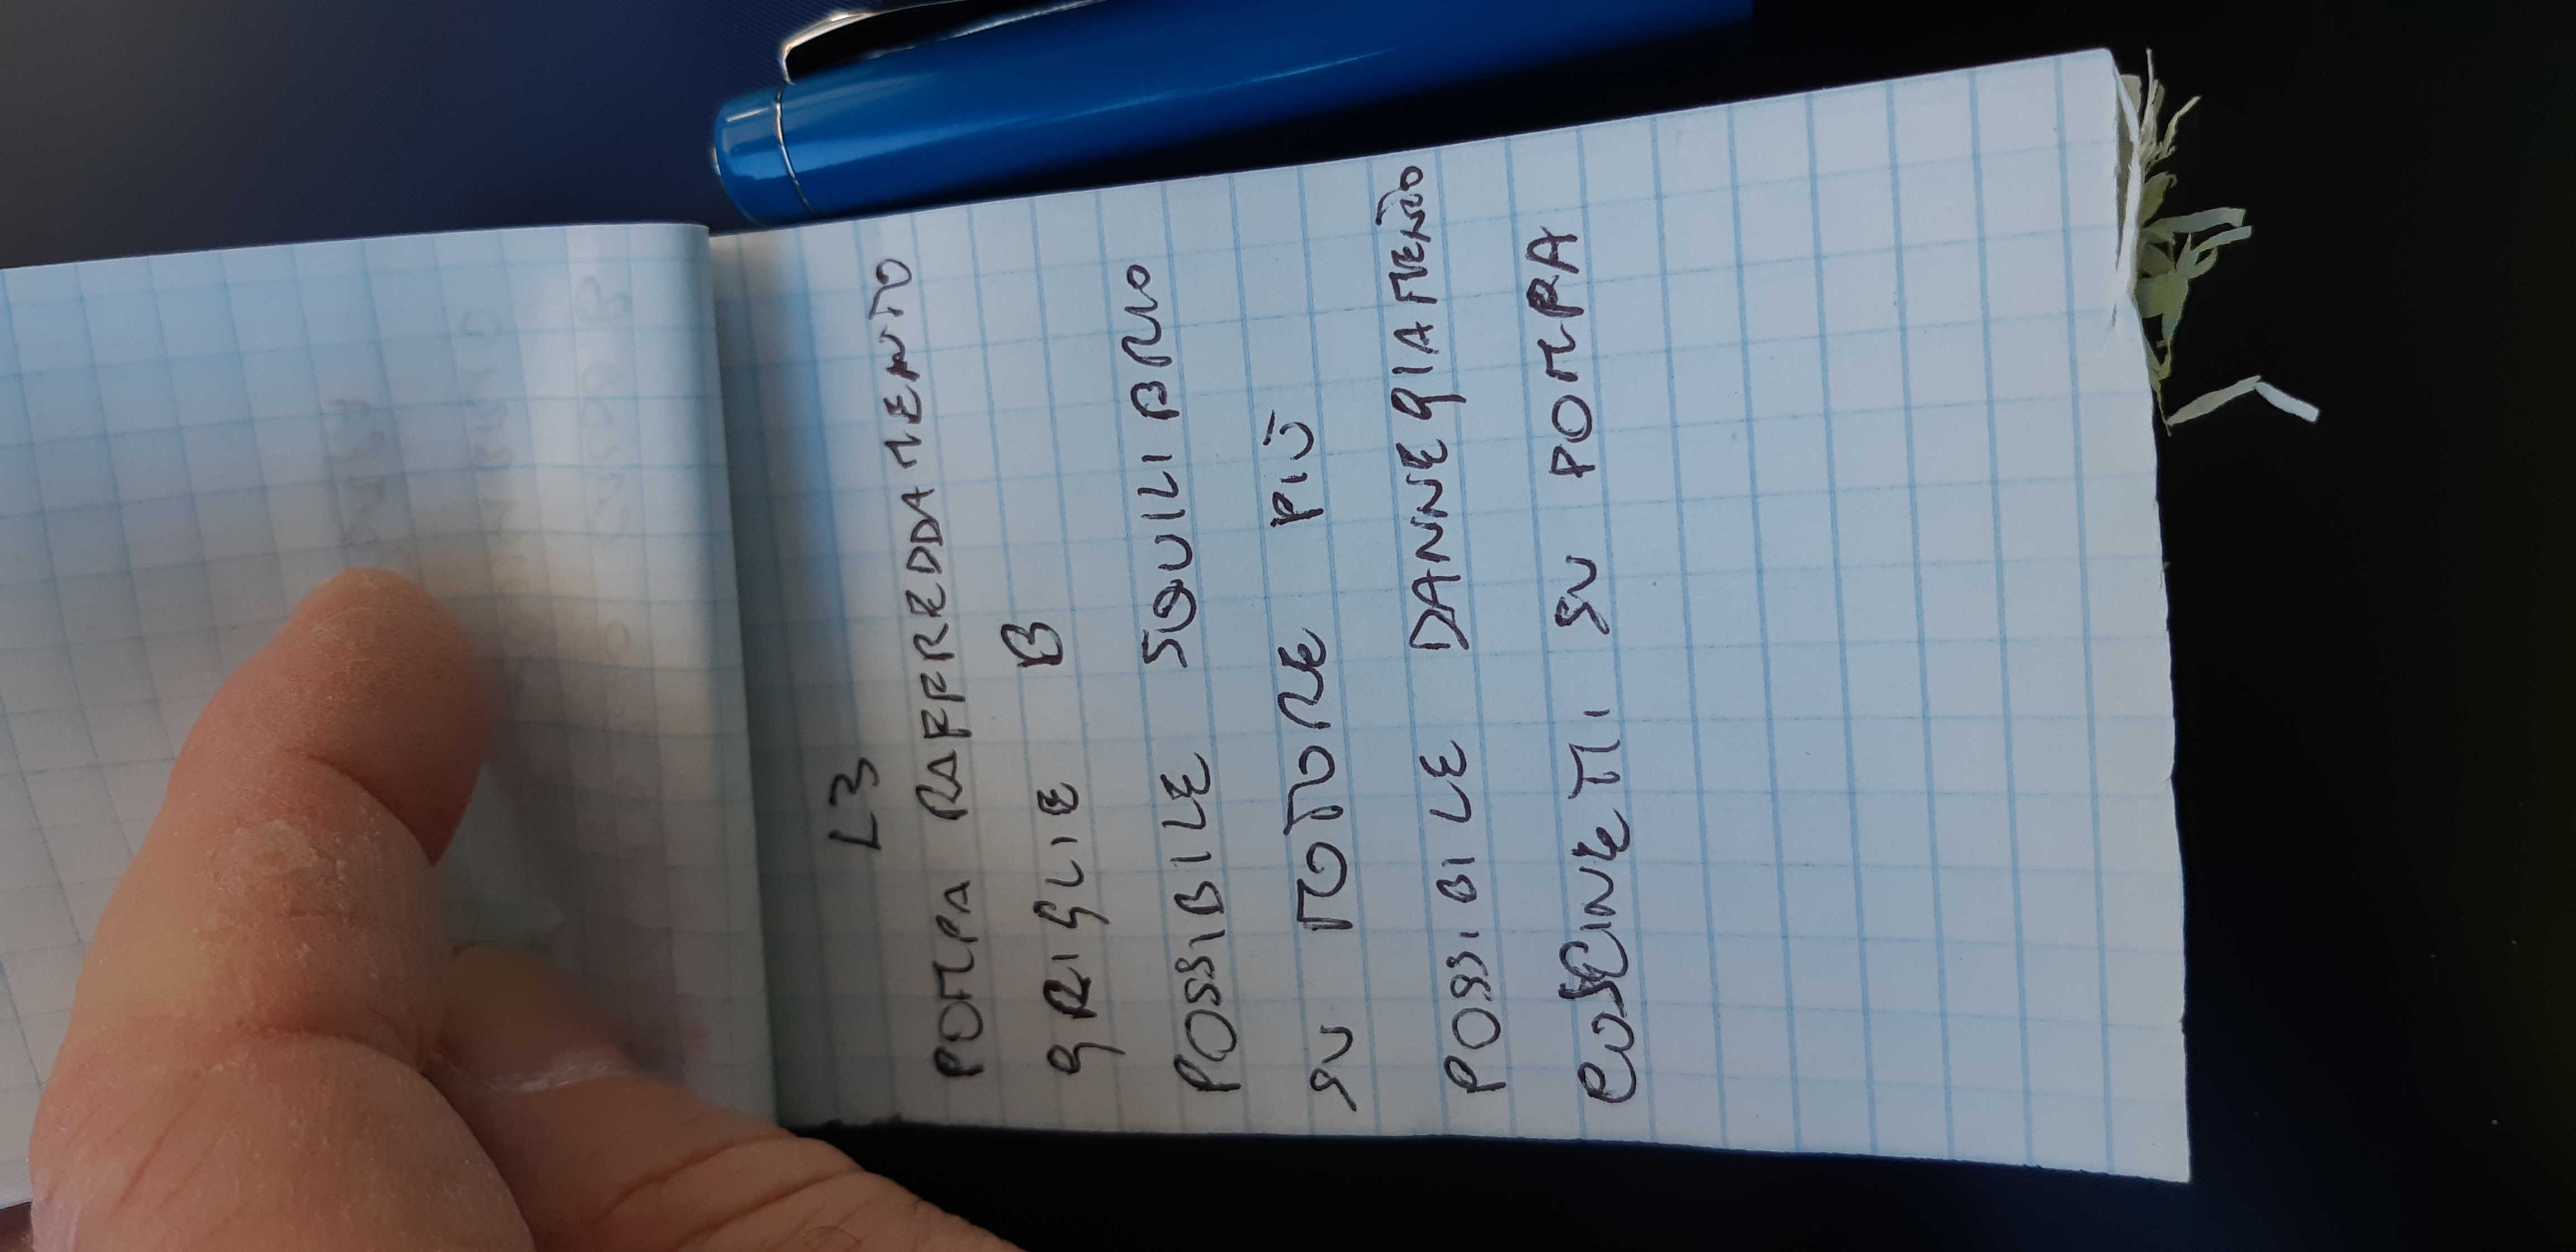 L3
POMPA RAFFREDDAMENTO
GRIGLIE B
POSSIBILE SQUILIBRIO
SU MOTORE PIÙ
POSSIBILE DANNEGIAMENTO
CUSCINETTI SU POMPA